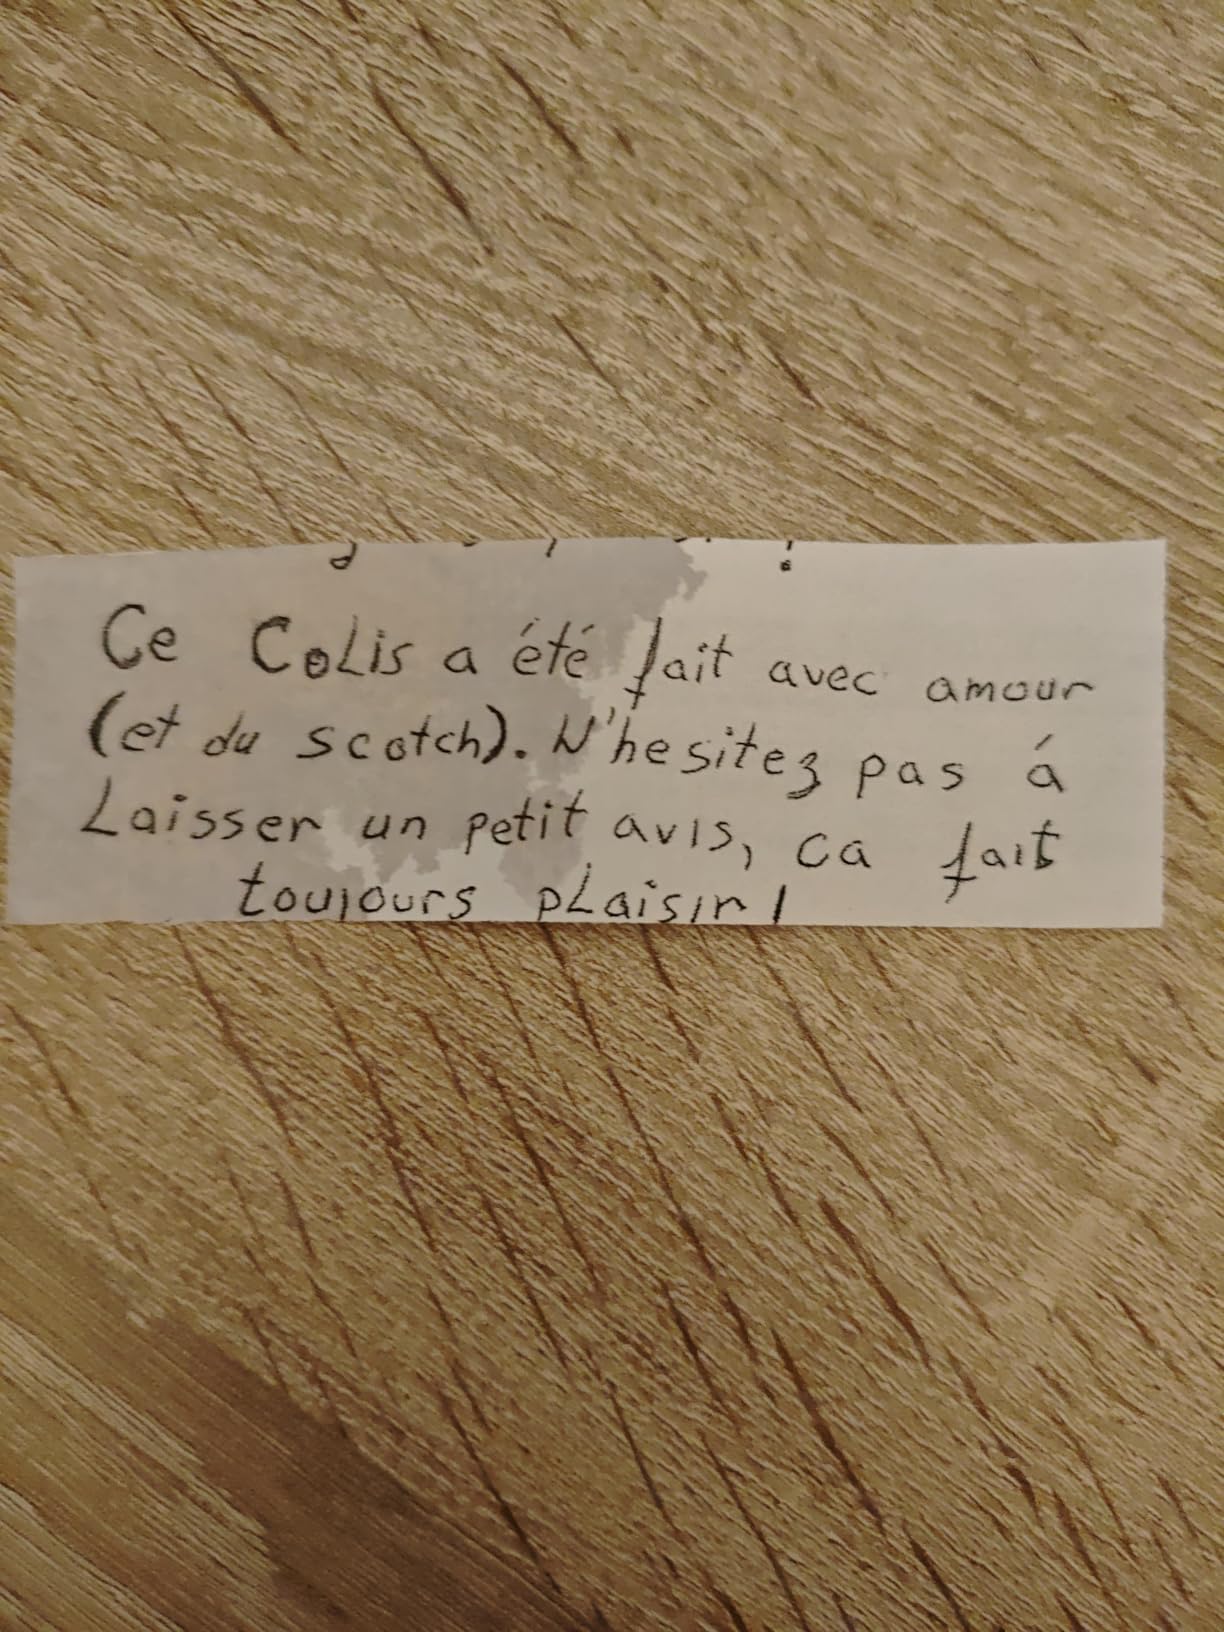 Ce Colis a été fait avec amour
(et du scotch). N'hesitez pas á
Laisser un petit avis, ca fait
toujours plaisir!